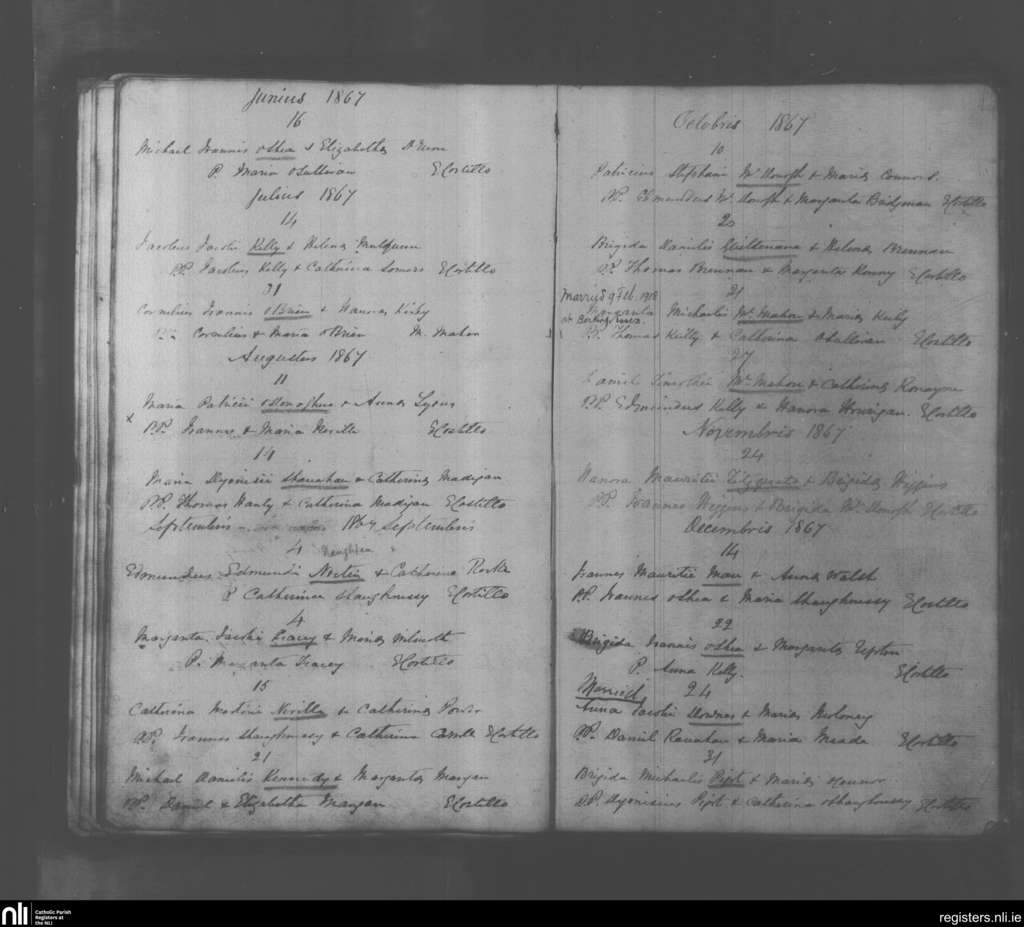 Junius 1867
16
Michael Joannis OShea & Elizabetha
P. Maria OSullivan ECostello
Julius 1867
14
Jacobus Jacobi Kelly & Helena Mulqueen
PP. Jacobus Kelly & Catherina Somers ECostello
31
Cornelius Joannis OBrien & Hanora Kirby
Cornelius & Maria OBrien M. Mahon
Augustus 1867
11
Maria Patricii ODonoghue & Anna Lyons
x PP. Joannes & Maria Neville ECostello
14
Maria Dyonisii Shanahan & Catherina Madigan
PP. Thomas Hanly & Catherina Madigan ECostello
Septembris 1867 Septembris
4
Edmundus Edmundi & Catherina
P Catherina Shaughnessy ECostello
4
Margarita Jacobi Tracey & Maria
P. Margarita Tracey ECostello
15
Catherina Neville & Catherina Power
PP. Joannes Shaughnessy & Catherina ECostello
21
Michael Danielis Kennedy & Margarita Mangan
PP. Daniel & Elizabetha Mangan ECostello
Octobris 1867
10
Patricius Stephani McDonogh & Maria Connors.
PP. Edmundus McDonogh & Margarita Bridgman ECostello
20
Brigida Danielis & Helena Brennan
PP. Thomas Brennan & Margarita Kenny ECostello
Married 9 Feb. 1918
21
Margarita Michaelis McMahon & Maria Kielly
PP. Thomas Kielly & Catherina OSullivan ECostello
27
Daniel Timothei McMahon & Catherina Ronayne
P.P. Edmundus Kelly & Hanora Hourigan. ECostello
Novembris 1867
24
Hanora Mauritii Fitzgerald & Brigida Higgins
PP. Joannes Higgins & Brigida McDonogh ECostello
Decembris 1867
14
Joannes Mauritii & Anna Walsh
PP. Joannes OShea & Maria Shaughnessy ECostello
22
Brigida Joannis OShea & Margarita Upton
P. Anna Kelly. ECostello
Married 24
Anna Jacobi Downes & Maria Moloney
PP. Daniel & Maria Meade ECostello
31
Brigida Michaelis Pigott & Maria OConnor
PP. Dyonisius Pigott & Catherina OShaughnessy ECostello
nli Catholic Parish
Registers at
the NLI
registers.nli.ie